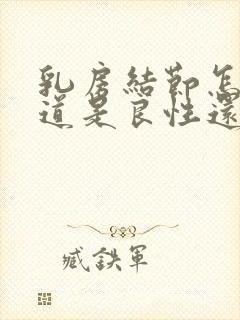 乳房結節怎
道是良性還
臧鉄軍